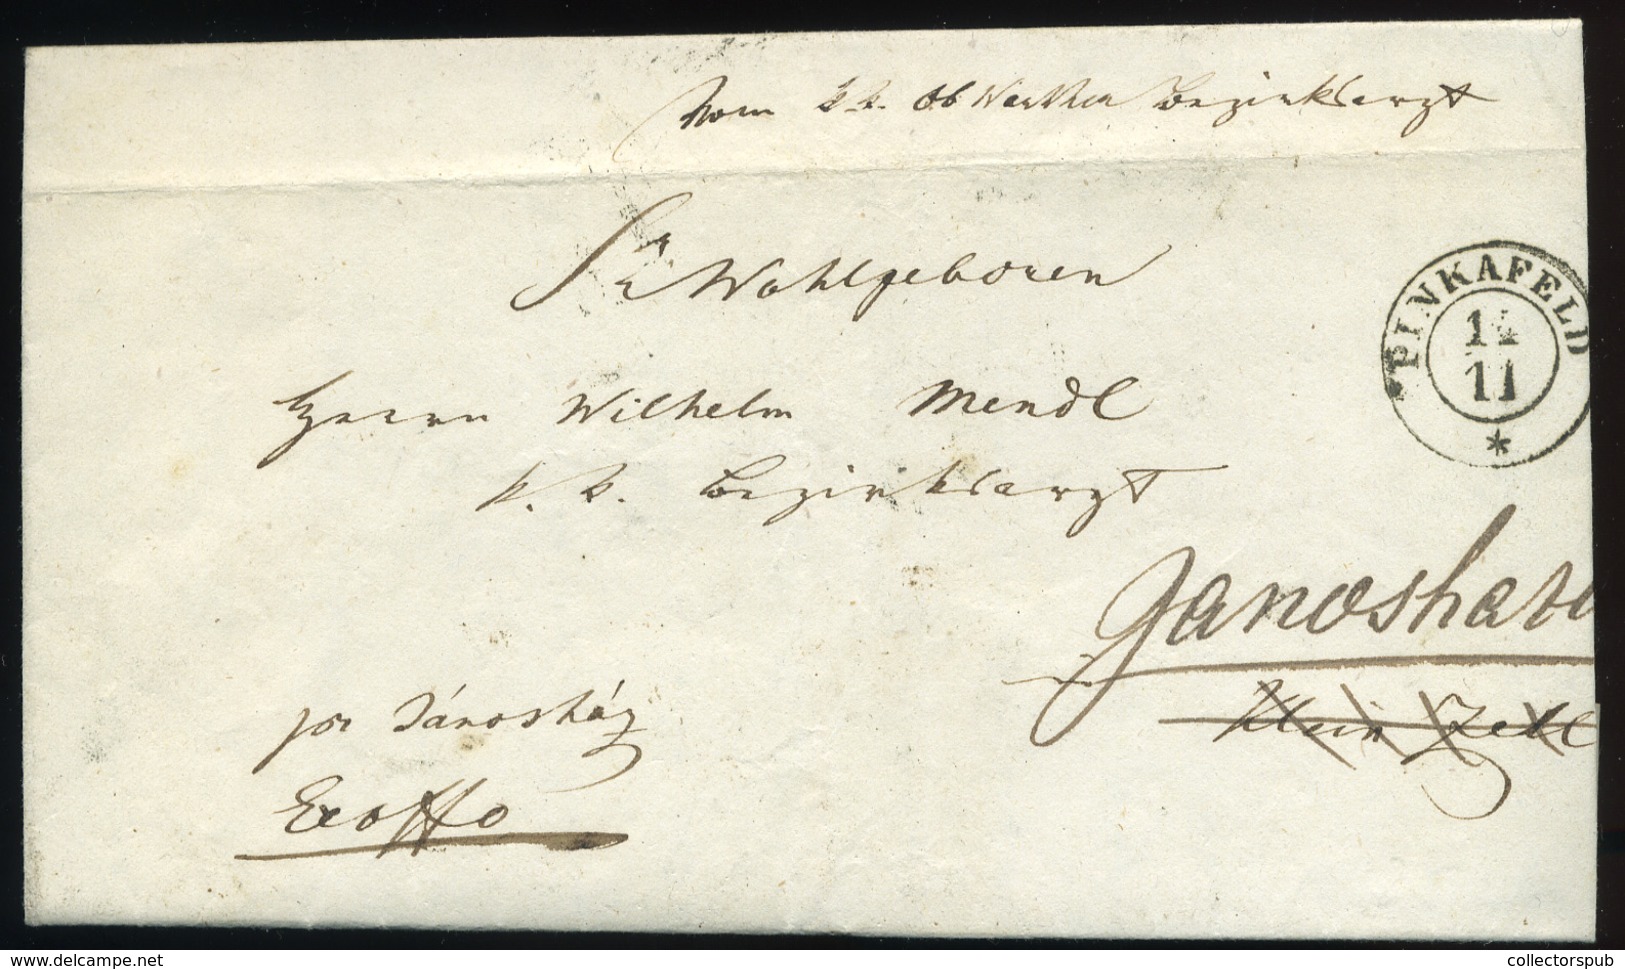 Vom k. k. Ob Warther Bezirksarzt
Sr Wohlgeboren
PINKAFELD
14
11
*
Herrn Wilhelm Mendl
k. k. Bezirksarzt
Janoshaz
pr Jánosház
Klein Zell
Ex offo
www.delcampe.net
collectorspub